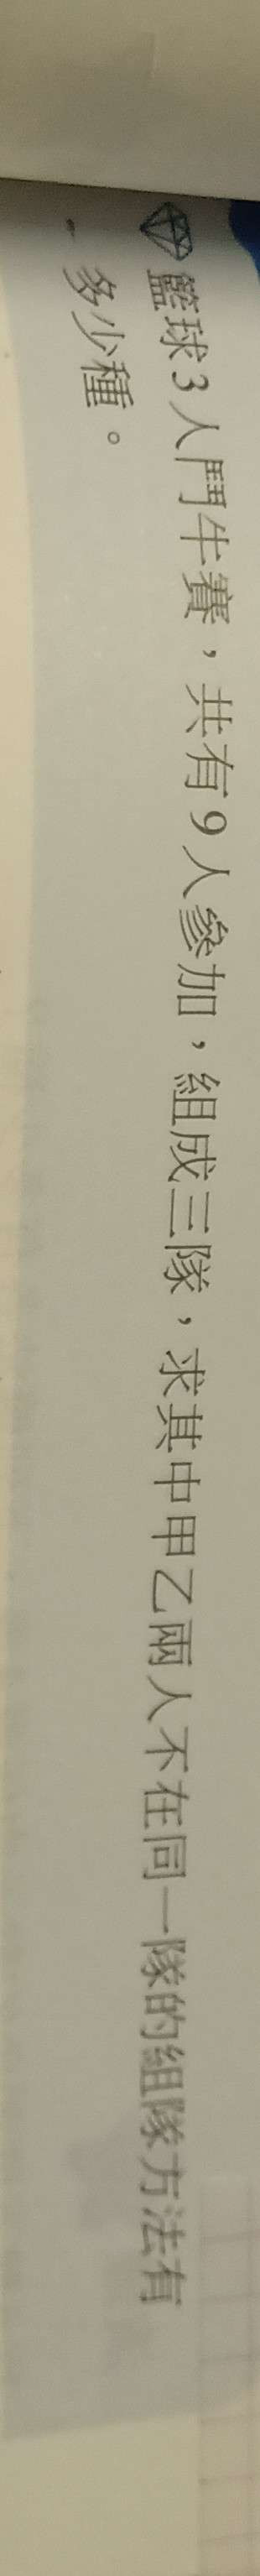 籃球3人鬥牛賽，共有9人參加，組成三隊，求其中甲乙兩人不在同一隊的組隊方法有
多少種。